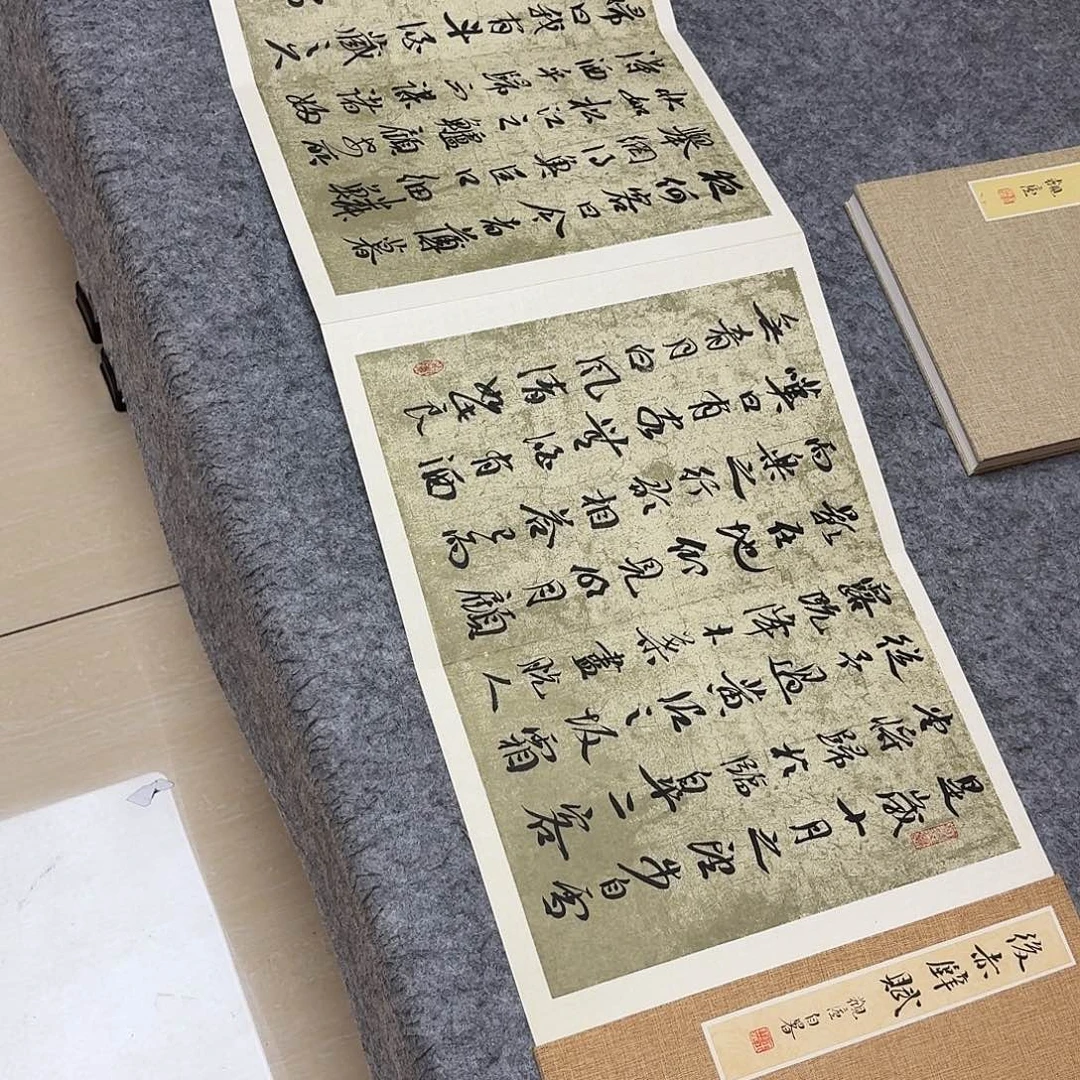 是歲十月之望步自雪
堂將歸於臨皋二客
從予過黃泥之坂霜
露既降木葉盡脫人
影在地仰見明月顧
而樂之行歌相答已而
嘆曰有客無酒有酒
無肴月白風清如此良
夜何客曰今者薄暮
舉網得魚巨口細鱗
狀如松江之鱸顧安所
得酒乎歸而謀諸婦
婦曰我有斗酒藏之久
後赤壁賦
自署